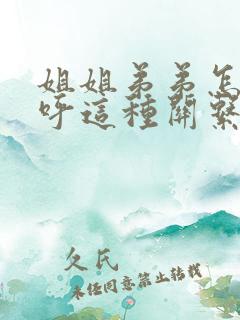 姐姐弟弟怎
呼這種關繫
欠民
未經同意禁止轉載